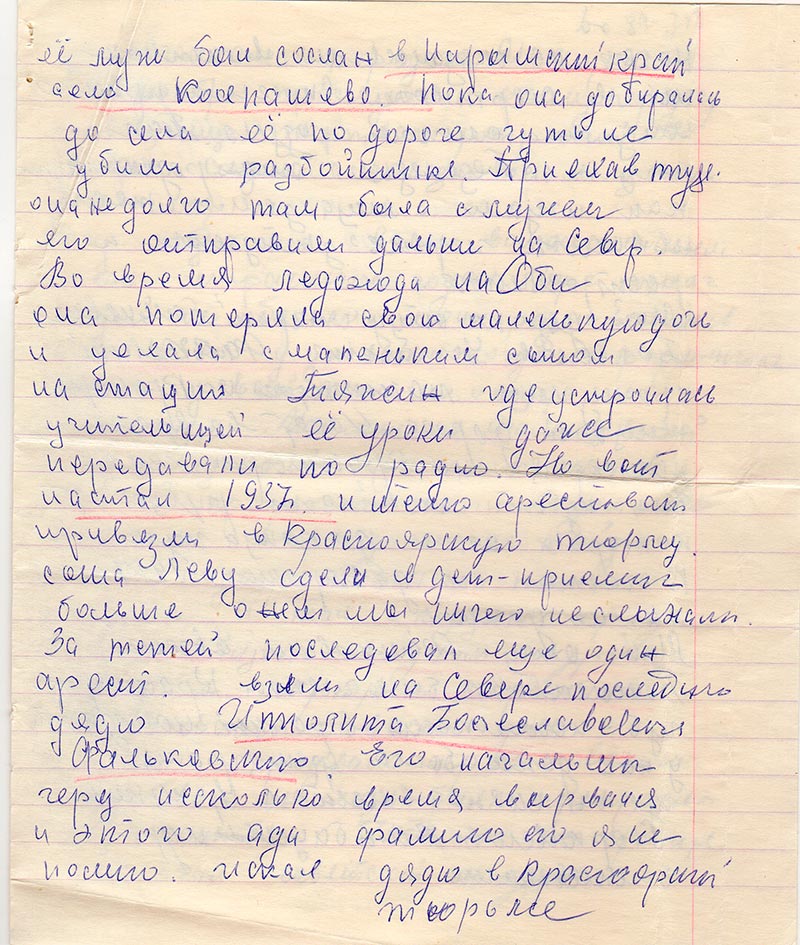 её муж был сослан в Нарымский край
село Колпашево. Пока она добиралась
до села её по дороге чуть не
убили разбойники. Приехав туда
она недолго там была с мужем
его отправили дальше на Север.
Во время ледохода на Оби
она потеряла свою маленькую дочь
и уехала с маленьким сыном
на станцию Тяжин где устроилась
учительницей её уроки даже
передавали по радио. Но вот
настал 1937г. и тётю арестовали
привезли в Красноярскую тюрьму.
сына Леву сдали в дет-приемник
больше о нем мы ничего не слыхали.
За тетей последовал еще один
арест. взяли на Севере последнего
дядю Ипполита Болеславовича
Фальковского. Его начальник
через несколько время вырвался
и этого ада фамилию его я не
помню. искал дядю в Красноярской
тюрьме